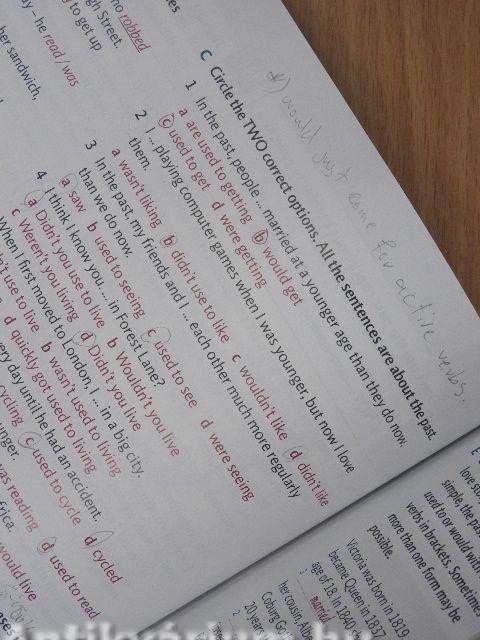 no robbed
gh Street,
to get up
y - he read / was
her sandwich,
would just came for active verbs.
C Circle the TWO correct options. All the sentences are about the past.
1 In the past, people ... married at a younger age than they do now.
a are used to getting b would get
c used to get d were getting
2 I ... playing computer games when I was younger, but now I love
them.
a wasn't liking b didn't use to like c wouldn't like d didn't like
3 In the past, my friends and I ... each other much more regularly
than we do now.
a saw b used to seeing c used to see d were seeing
4 I think I know you. ... in Forest Lane?
a Didn't you use to live b Wouldn't you live
c Weren't you living d Didn't you live
When I first moved to London, I ... in a big city.
n't use to live b wasn't used to living
d quickly got used to living
ery day until he had an accident.
cycling c used to cycle d cycled
nger.
was reading d used to read
frica.
would live
love sto
simple, the pas
used to or would with
verbs in brackets. Sometimes
more than one form may be
possible.
Victoria was born in 1819
became Queen in 1837
age of 18. In 1840 th
1 married
her cousin, Albe
Coburg Go
20 years
2